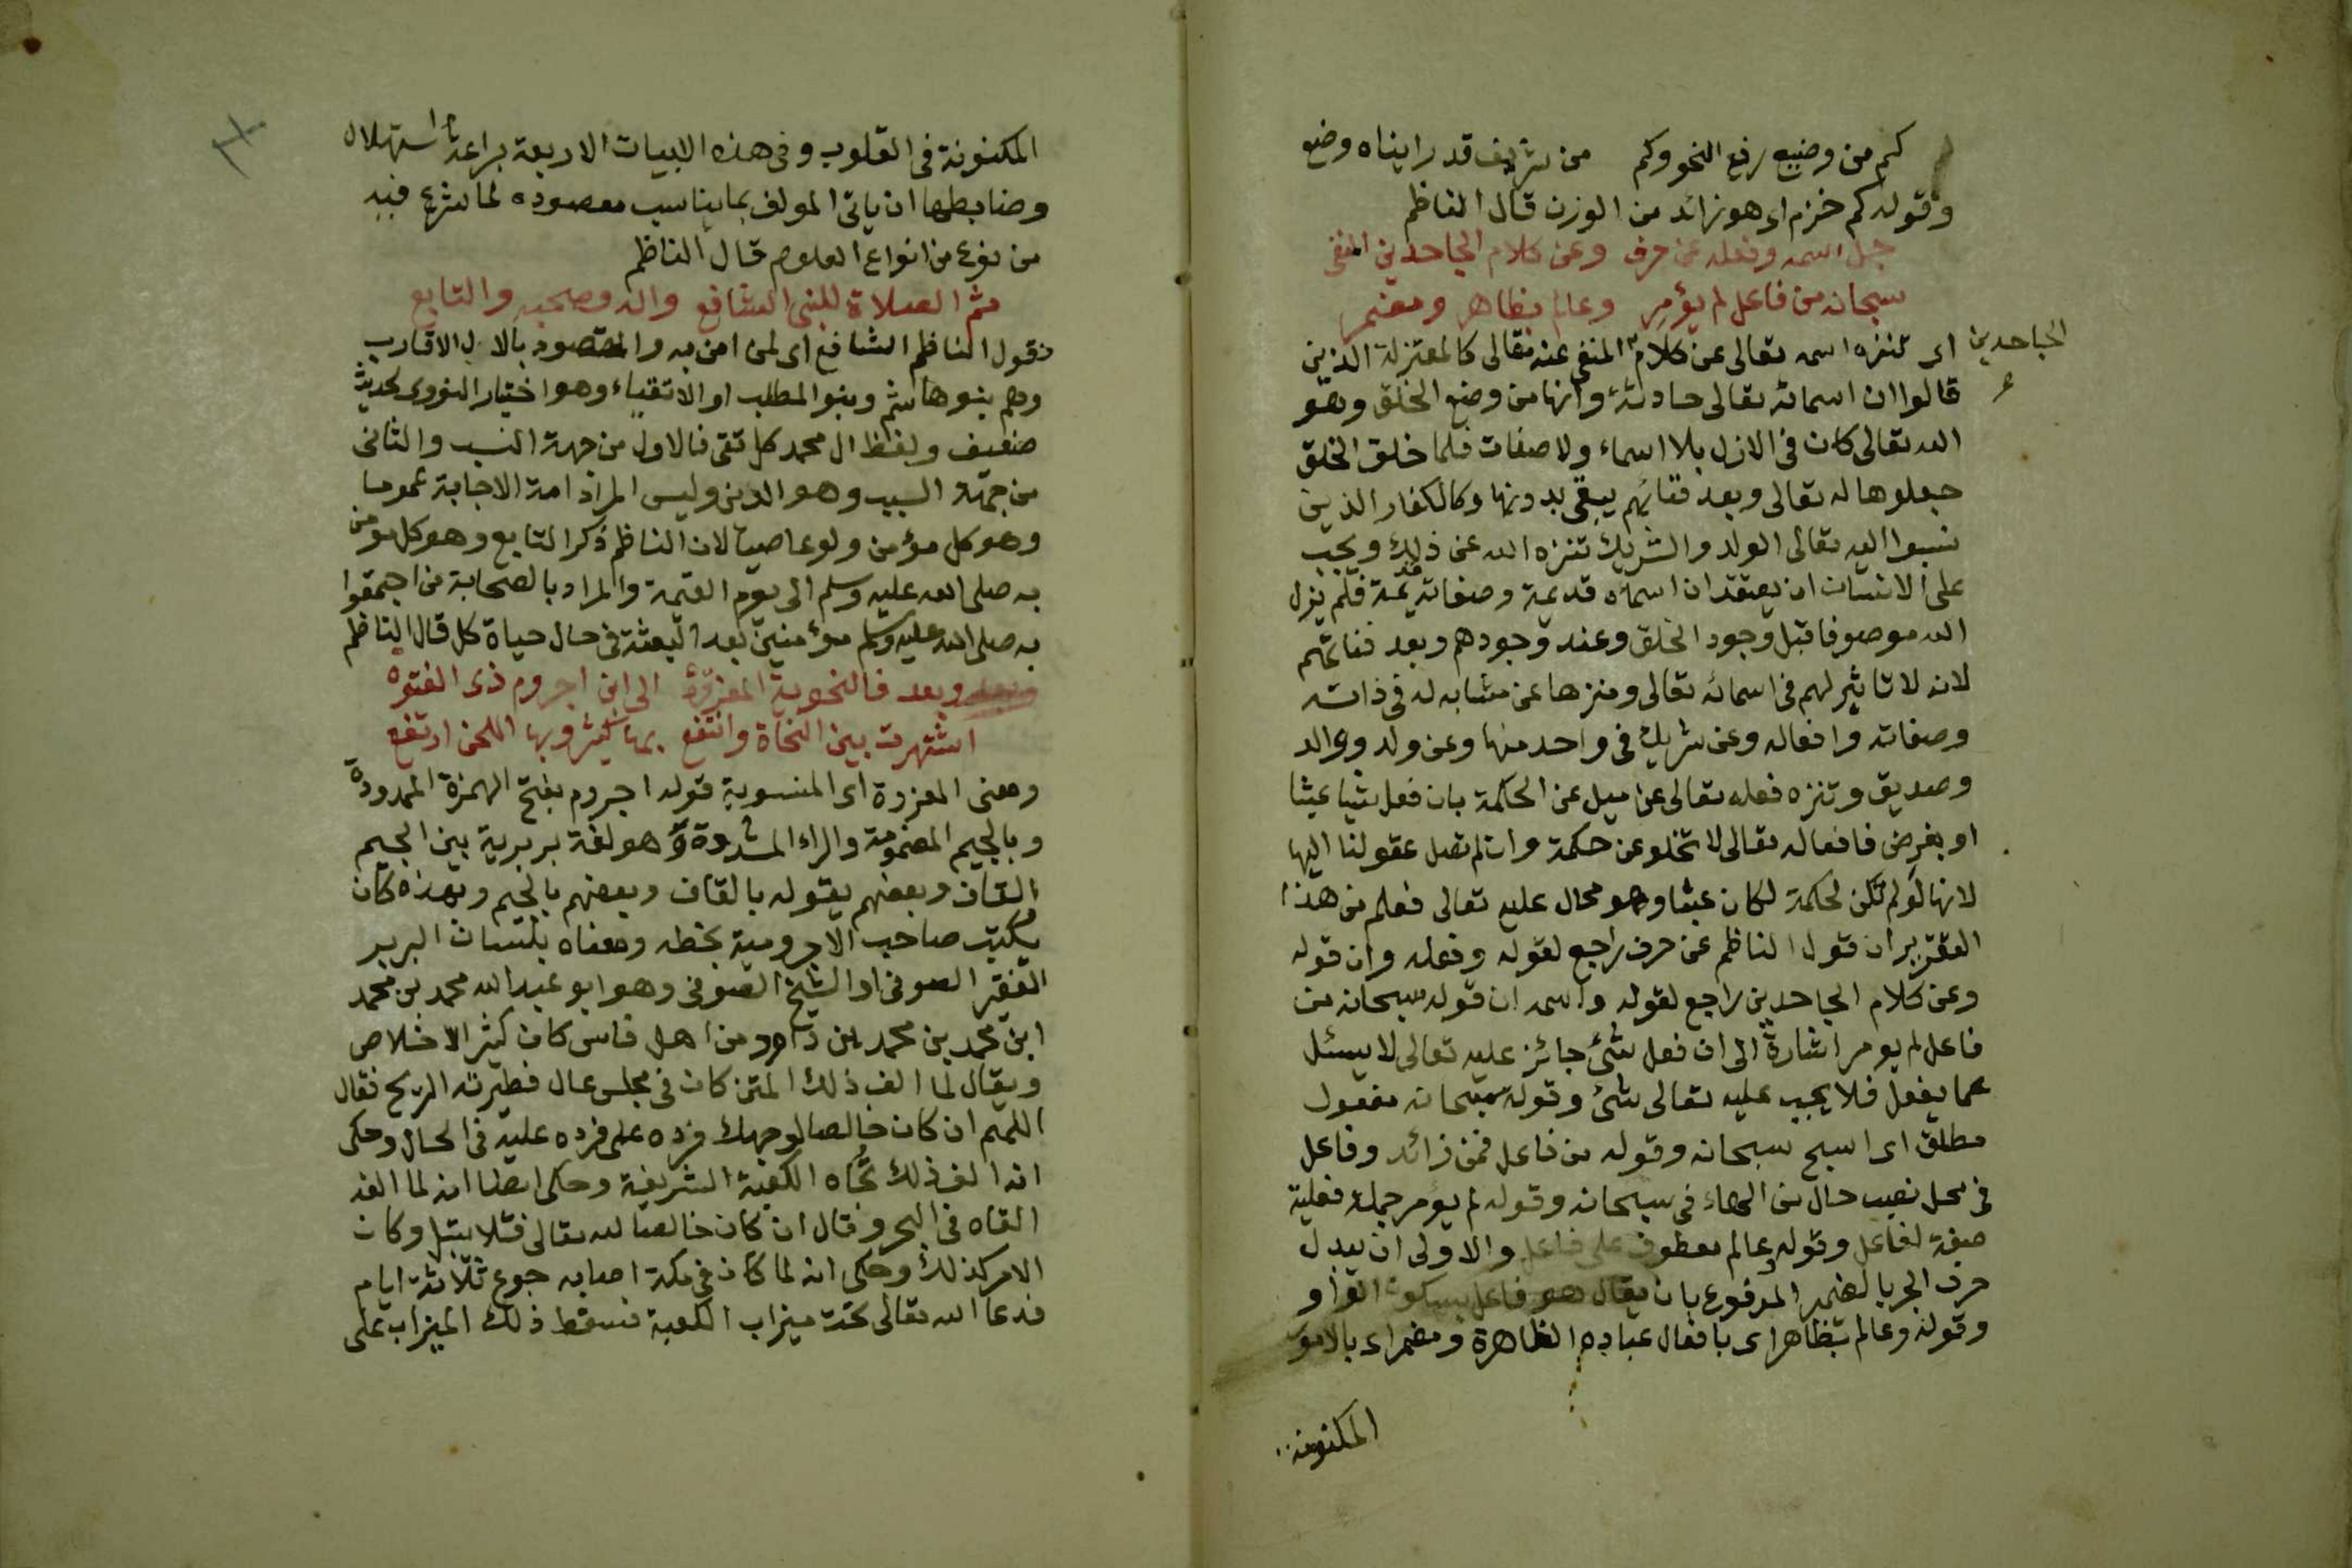 كم من وضيع رفع النحو وكم من شريف قد رايناه وضع
وقوله كم خزم اى هو زائد من الوزن قال الناظم
جل اسمه وفعله عن حرف وعن كلام الجاحدين المنفى
سبحانه من فاعل لم يؤمر وعالم بظاهر ومضمر
اى تنزه اسمه تعالى عن كلام المنفى عنه تعالى كالمعتزلة الذين
الجاحدين
قالوا ان اسمائه تعالى حادثة وانها من وضع الخلق وهو
الله تعالى كان فى الازل بلا اسماء ولا صفات فلما خلق الخلق
جعلوها له تعالى وبعد فنائهم يبقى بدونها وكالكفار الذين
نسبوا اليه تعالى الولد والشريك تنزه الله عن ذلك ويجب
على الانسان ان يعتقد ان اسمائه قديمة وصفاته قديمة فلم يزل
الله موصوفا قبل وجود الخلق وعند وجودهم وبعد فنائهم
لانه لا تاثير لهم فى اسمائه تعالى ومنزها عن مشابه له فى ذاته
وصفاته وافعاله وعن شريك فى واحد منها وعن ولد ووالد
وصديق وتنزه فعله تعالى عن ميل عن الحكمة بان فعل شيا عبثا
او بغرض فافعاله تعالى لا تخلو عن حكمة وان لم تصل عقولنا اليها
لانها لو لم تكن لحكمة لكان عبثا وهو محال عليه تعالى فعلم من هذا
التقرير ان قول الناظم عن حرف راجع لقوله وفعله وان قوله
وعن كلام الجاحدين راجع لقوله واسمه ان قوله سبحانه من
فاعل لم يومر اشارة الى ان فعل شئ جائز عليه تعالى لا يسئل
عما يفعل فلا يجب عليه تعالى شئ وقوله سبحانه مفعول
مطلق اى اسبح سبحانه وقوله من فاعل فمن زائد وفاعل
فى محل نصب حال من الهاء فى سبحانه وقوله لم يؤمر جملة فعلية
صفة لفاعل وقوله عالم معطوف على فاعل والاولى ان يبدل
حرف الجر بالضمير المرفوع بان يقال هو فاعل بسكون الواو
وقوله وعالم بظاهر اى بافعال عباده الظاهرة ومضمر اى بالامور
المكنونة
المكنونة فى القلوب وفى هذه الابيات الاربعة براعة استهلال
وضابطها ان ياتى المولف بما يناسب مقصوده لما شرع فيه
من نوع من انواع العلوم قال الناظم
ثم الصلاة للنبى الشافع واله وصحبه والتابع
فقول الناظم الشافع اى لمن امن به والمقصود بالال الاقارب
وهم بنو هاشم وبنو المطلب او الاتقياء وهو اختيار النووى لحديث
ضعيف ولفظ ال محمد كل تقى فالاول من جهة النسب والثانى
من جهة السبب وهو الدين وليس المراد امة الاجابة عموما
وهو كل مؤمن ولو عاصيا لان الناظم ذكر التابع وهو كل مومن
به صلى الله عليه وسلم الى يوم القيمة والمراد بالصحابة من اجتمعوا
به صلى الله عليه وسلم مؤمنين بعد البعثة فى حال حياة كل قال الناظم
وبعد فالنحوية المعزوة الى ابن اجروم ذى الفتوه
اشتهرت بين النحاة وانتفع بها كثير وبها اللحن ارتفع
ومعنى المعزوة اى المنسوبة قوله اجروم بفتح الهمزة الممدودة
وبالجيم المضمومة والراء المشددة وهو لغة بربرية بين الجيم
القاف وبعضهم يقوله بالقاف وبعضهم بالجيم وبهذه كان
يكتب صاحب الاجرومية بخطه ومعناه بلسان البربر
الفقير الصوفى او الشيخ الصوفى وهو ابو عبد الله محمد بن محمد
ابن محمد بن محمد بن داود من اهل فاس كان كثير الاخلاص
ويقال لما الف ذلك المتن كان فى مجلس عال فطيرته الريح فقال
اللهم ان كان خالصا لوجهك فرده على فرده عليه فى الحال وحكى
انه الف ذلك تجاه الكعبة الشريفة وحكى ايضا انه لما الفه
القاه فى البحر وقال ان كان خالصا لله تعالى فلا يبتل وكان
الامر كذلك وحكى انه لما كان فى مكة اصابه جوع ثلاثة ايام
فدعا الله تعالى تحت ميزاب الكعبة فسقط ذلك الميزاب على